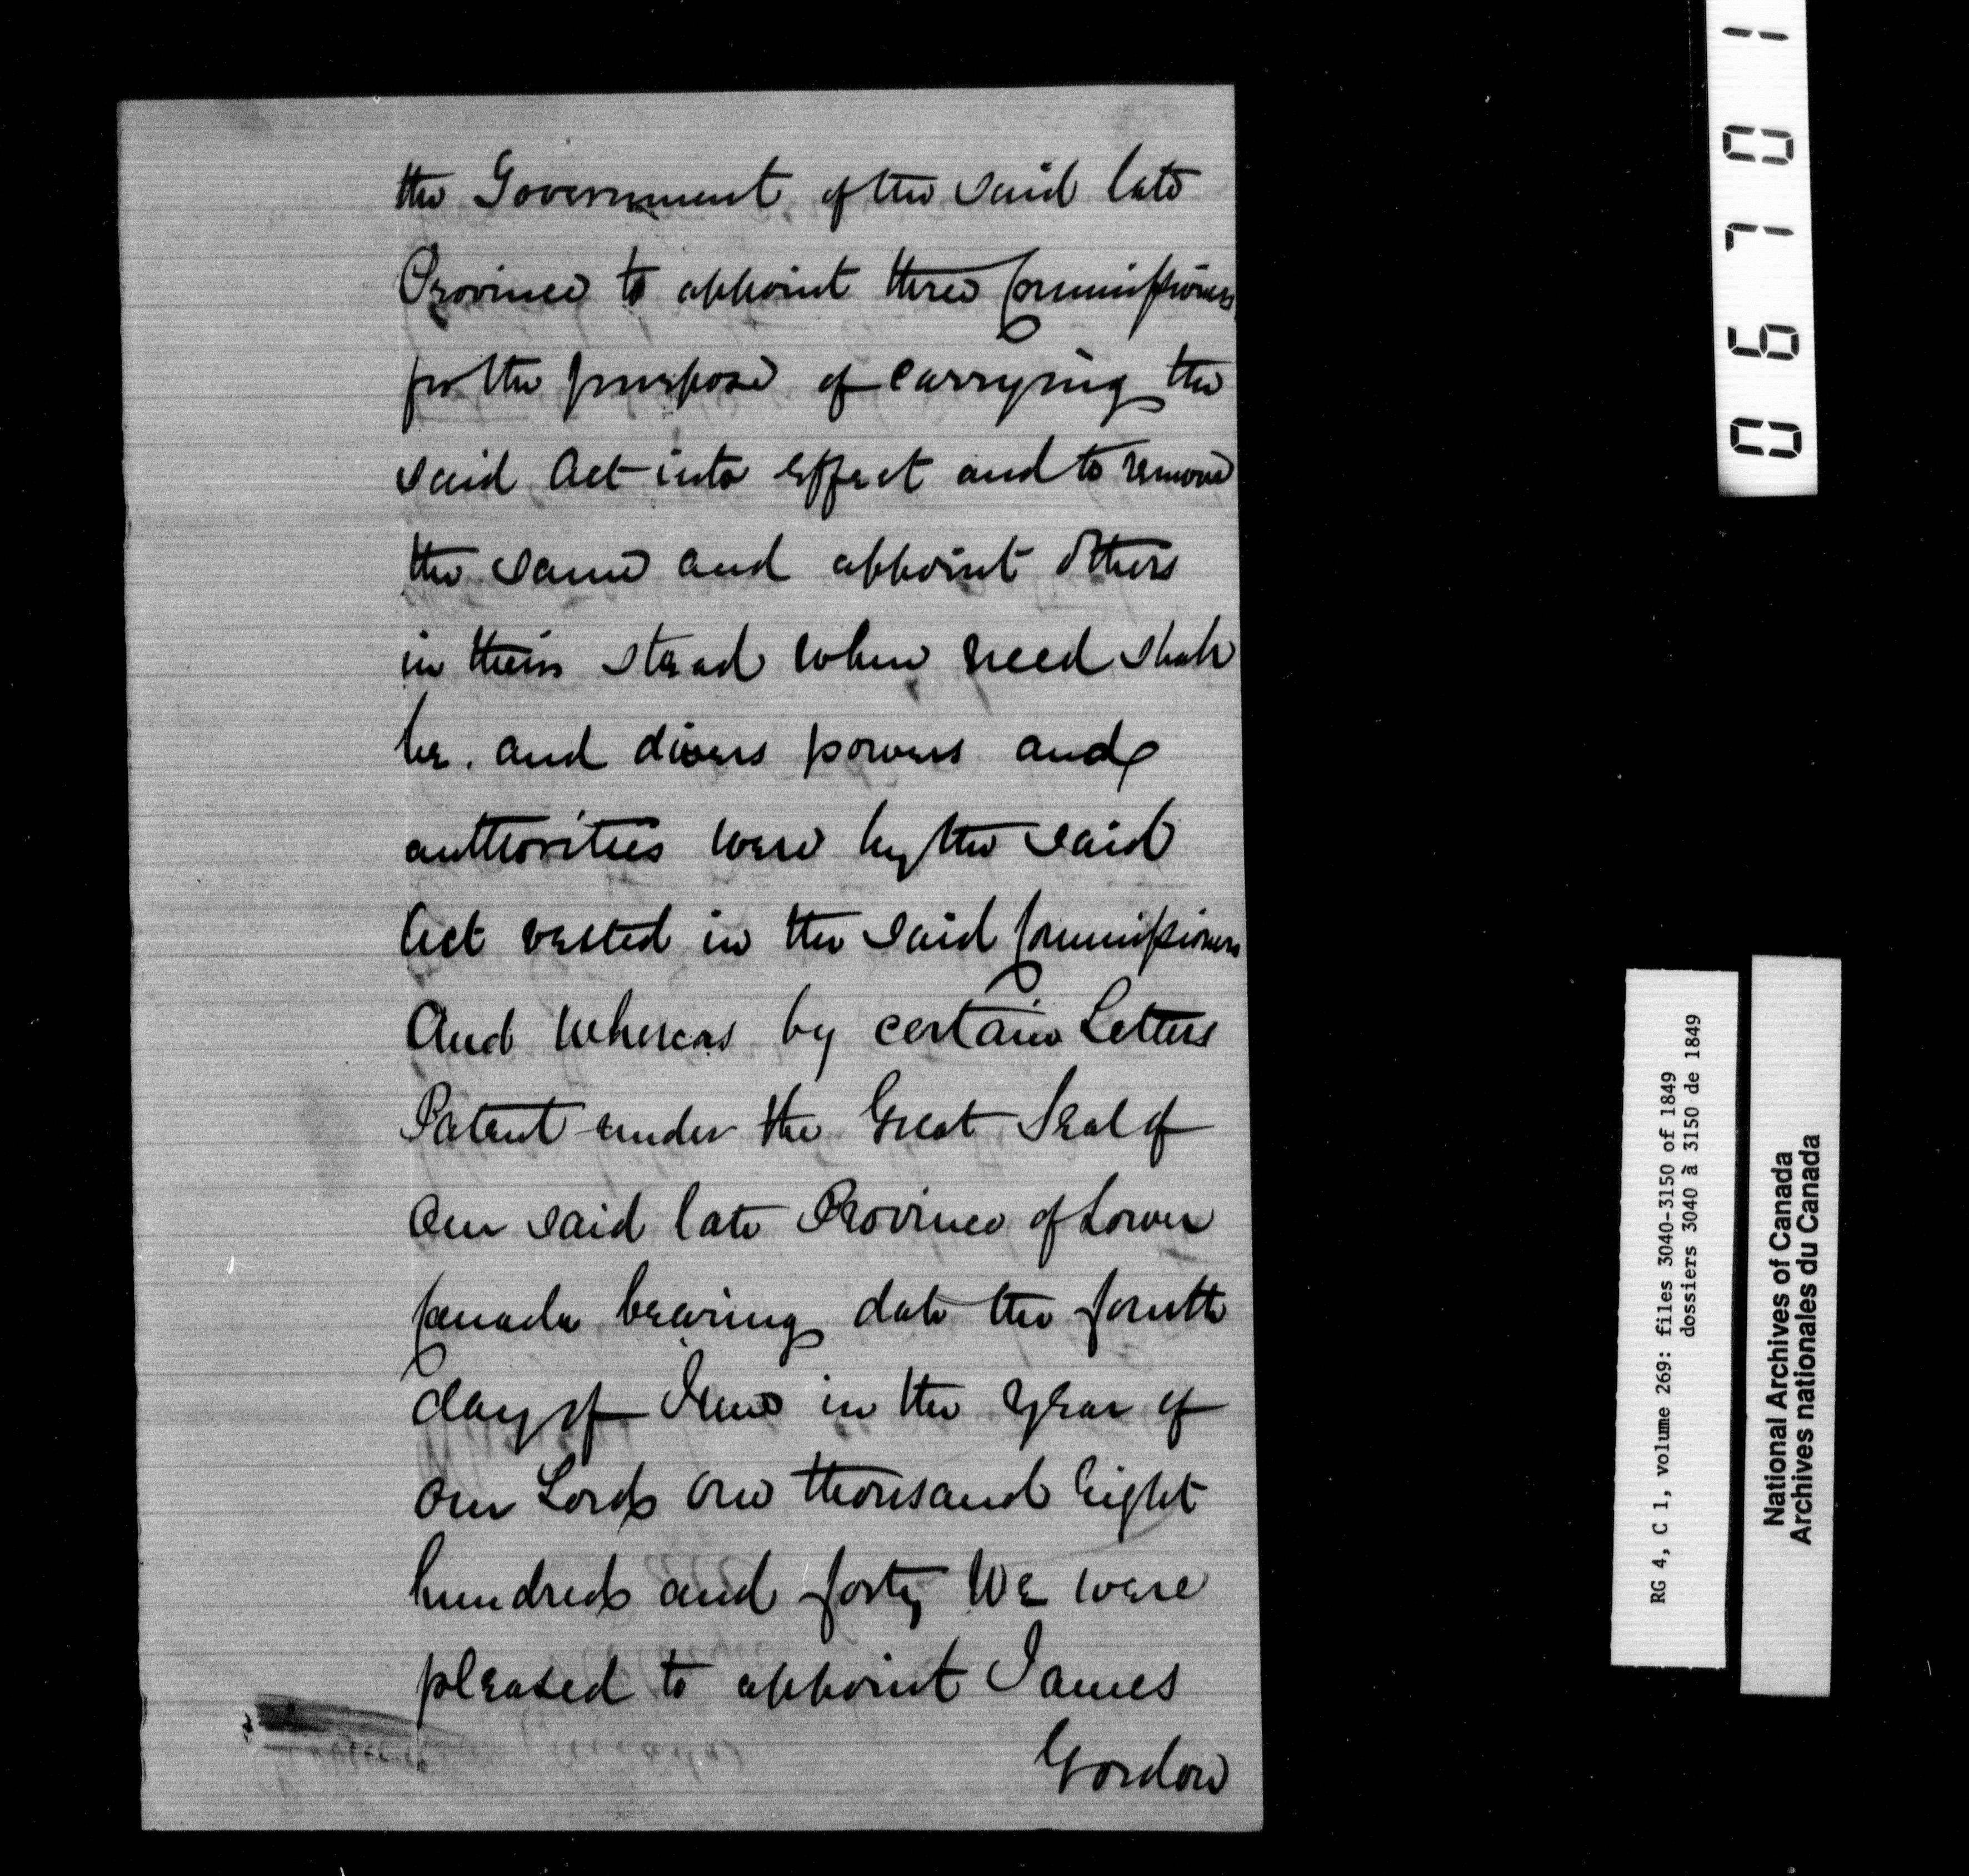 the Government of the said late
Province to appoint three Commissioners
for the purpose of carrying the
said Act into effect and to remove
the same and appoint others
in their stead when need shall
be. and divers powers and
authorities were by the said
Act vested in the said Commissioners
And Whereas by certain Letters
Patent under the Great Seal of
Our said late Province of Lower
Canada bearing date the fourth
day of June in the year of
Our Lord One thousand Eight
hundred and forty We were
pleased to appoint James
Gordon
06701
RG 4, C 1, volume 269: files 3040-3150 of 1849
dossiers 3040 à 3150 de 1849
National Archives of Canada
Archives nationales du Canada